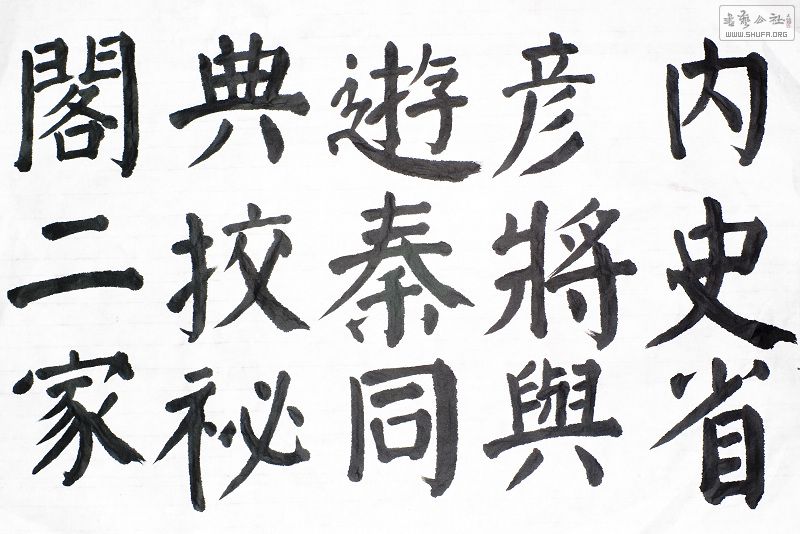 内史省
彦將與
遊秦同
典挍祕
閣二家
書藝公社
WWW.SHUFA.ORG